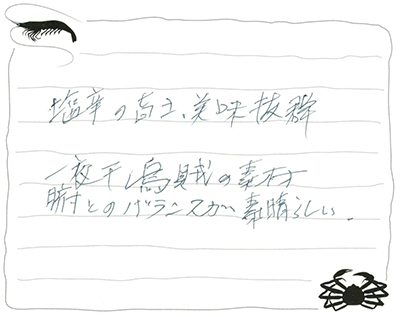 塩辛の 、美味抜群
一夜干し烏賊の素材
腑とのバランスが素晴らしい.